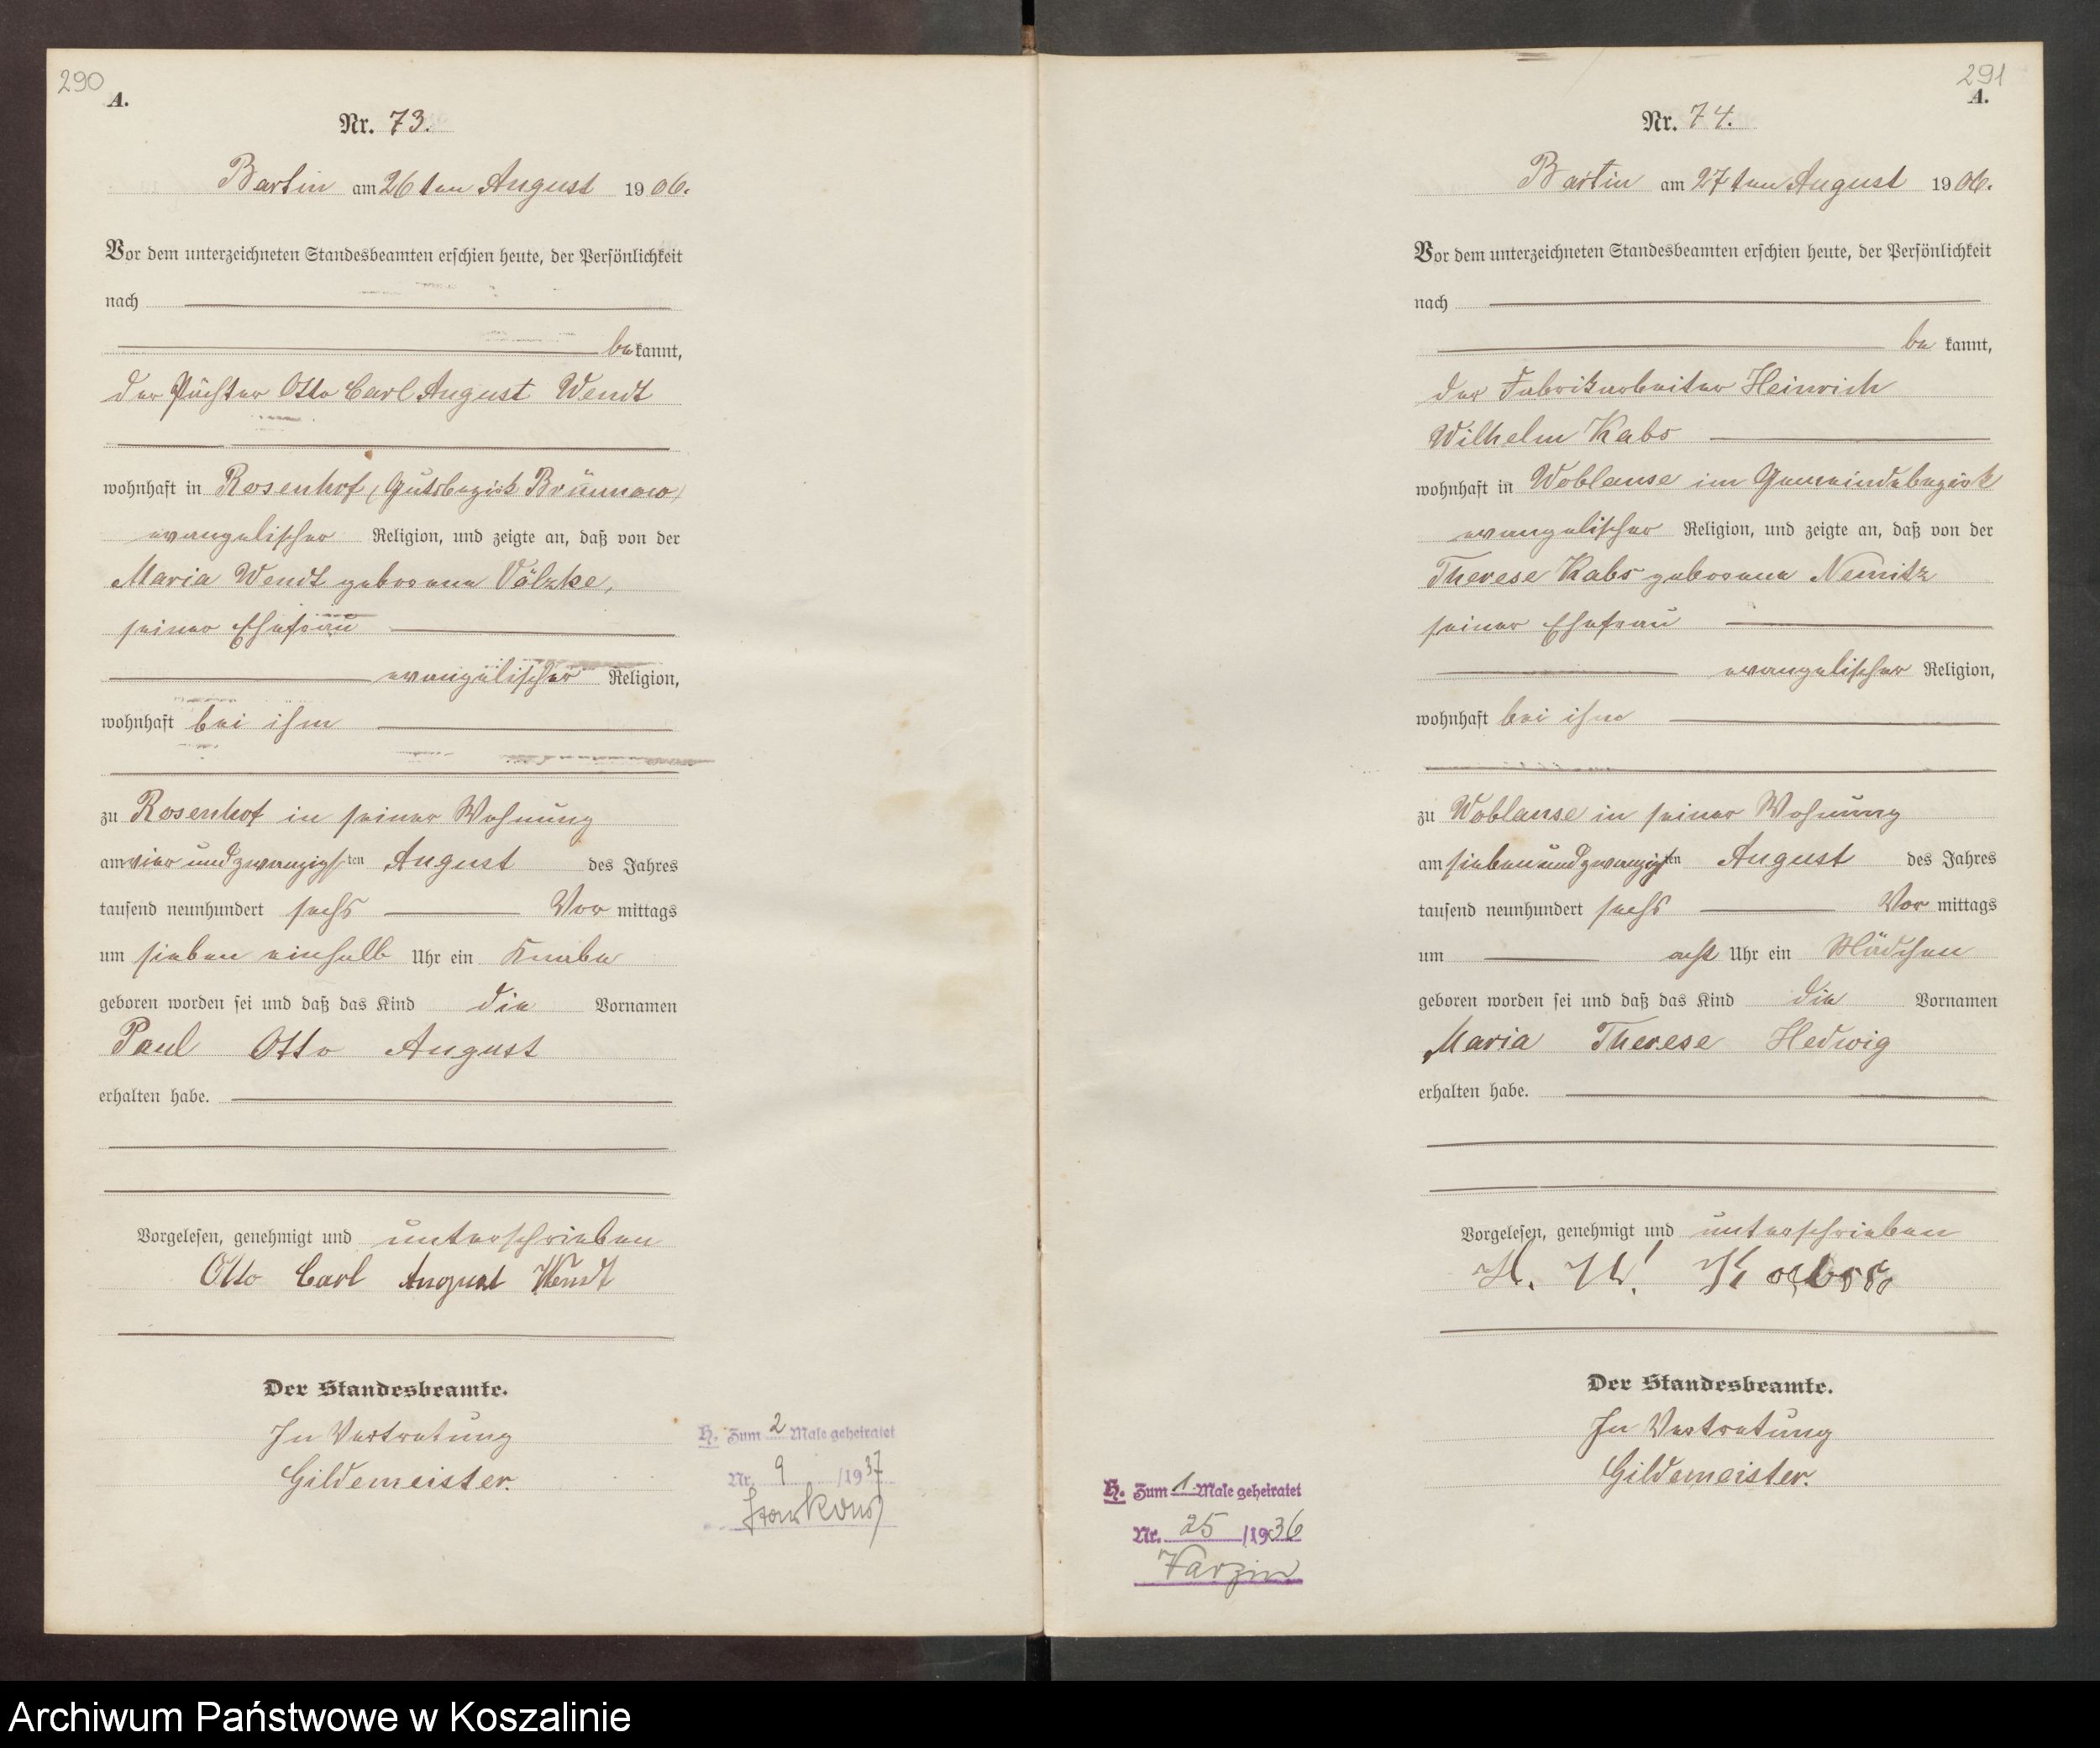 290
A.
Nr. 73.
Bartin am 26ten August 1906.
Vor dem unterzeichneten Standesbeamten erschien heute, der Persönlichkeit
nach
bekannt,
der Pächter Otto Carl August Wendt
wohnhaft in Rosenhof, Gutsbezirk Brünnow,
evangelischer Religion, und zeigte an, daß von der
Maria Wendt geborene Völzke,
seiner Ehefrau
evangelischer Religion,
wohnhaft bei ihm
zu Rosenhof in seiner Wohnung
am vier und zwanzigsten August des Jahres
tausend neunhundert sechs Vor mittags
um sieben einhalb Uhr ein Knabe
geboren worden sei und daß das Kind die Vornamen
Paul Otto August
erhalten habe.
Vorgelesen, genehmigt und unterschrieben
Otto Carl August Wendt
Der Standesbeamte.
In Vertretung
Gildemeister.
H. Zum 2 Male geheiratet
Nr. 9 /1937
291
A.
Nr. 74.
Bartin am 27ten August 1906.
Vor dem unterzeichneten Standesbeamten erschien heute, der Persönlichkeit
nach
bekannt,
der Fabrikarbeiter Heinrich
Wilhelm Kabs
wohnhaft in Woblanse im Gemeindebezirk
evangelischer Religion, und zeigte an, daß von der
Therese Kabs geborene Nemitz
seiner Ehefrau
evangelischer Religion,
wohnhaft bei ihm
zu Woblanse in seiner Wohnung
am siebenundzwanzigsten August des Jahres
tausend neunhundert sechs Vor mittags
um acht Uhr ein Mädchen
geboren worden sei und daß das Kind die Vornamen
Maria Therese Hedwig
erhalten habe.
Vorgelesen, genehmigt und unterschrieben
H. W. Kabs
Der Standesbeamte.
In Vertretung
Gildemeister.
H. Zum 1. Male geheiratet
Nr. 25 /1936
Varzin
Archiwum Państwowe w Koszalinie